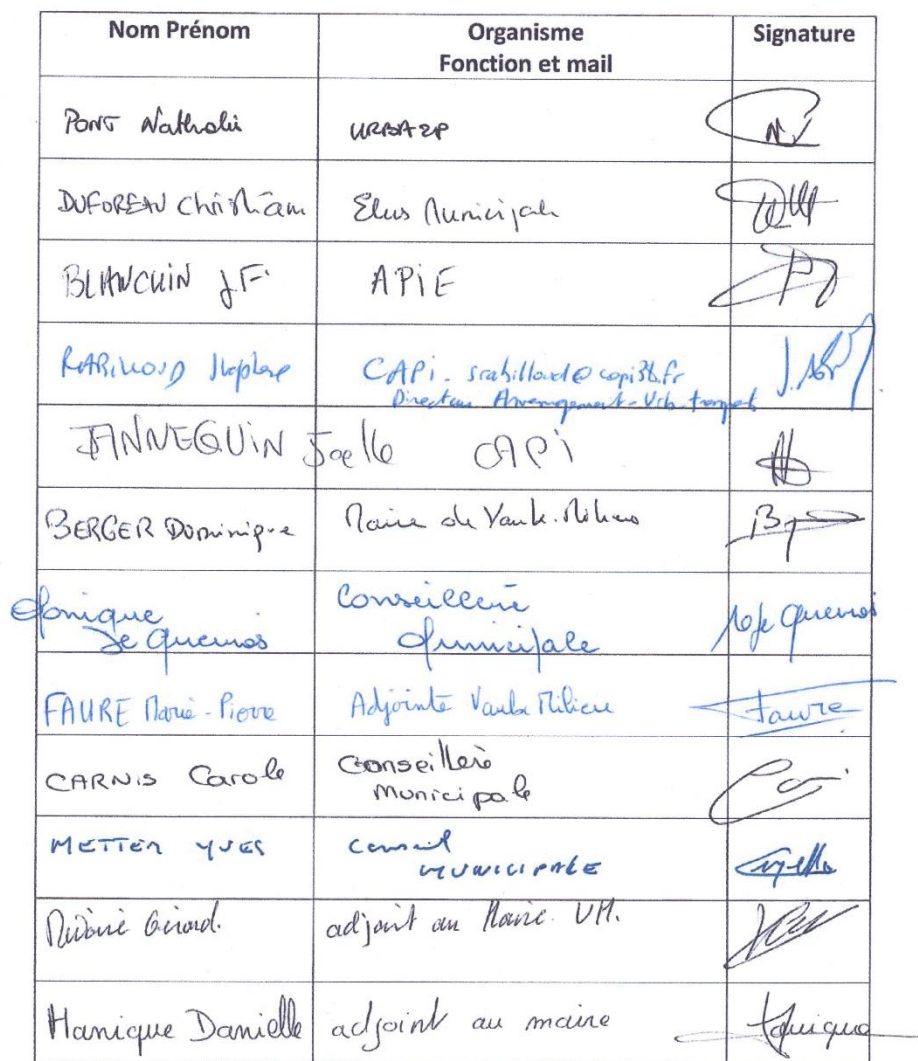 Nom Prénom
Organisme
Fonction et mail
Signature
PONT Nathalie
URBA2P
DUFOREAU Christian
Elus Municipale
BLANCHIN J.F.
APIE
RABILLOUD Stéphane
CAPI. srabilloud@capi38.fr
Directeur Aménagement-Urb-transport
JANNEGUIN Joelle
CAPI
BERGER Dominique
Maire de Vaulx.Milieu
Monique
De Quenos
Conseillère
Municipale
FAURE Marie-Pierre
Adjointe Vaulx Milieu
Faure
CARNIS Carole
Conseillere
Municipale
METTER YVES
Conseil
MUNICIPALE
Gérard.
adjoint au Maire VM.
Hanique Danielle
adjoint au maire
Hanique